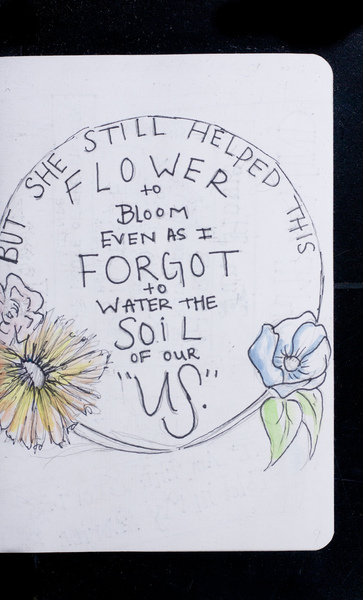 BUT SHE STILL HELPED THIS
FLOWER
to
BLOOM
EVEN AS I
FORGOT
to
WATER THE
SOiL
OF OUR
"US."